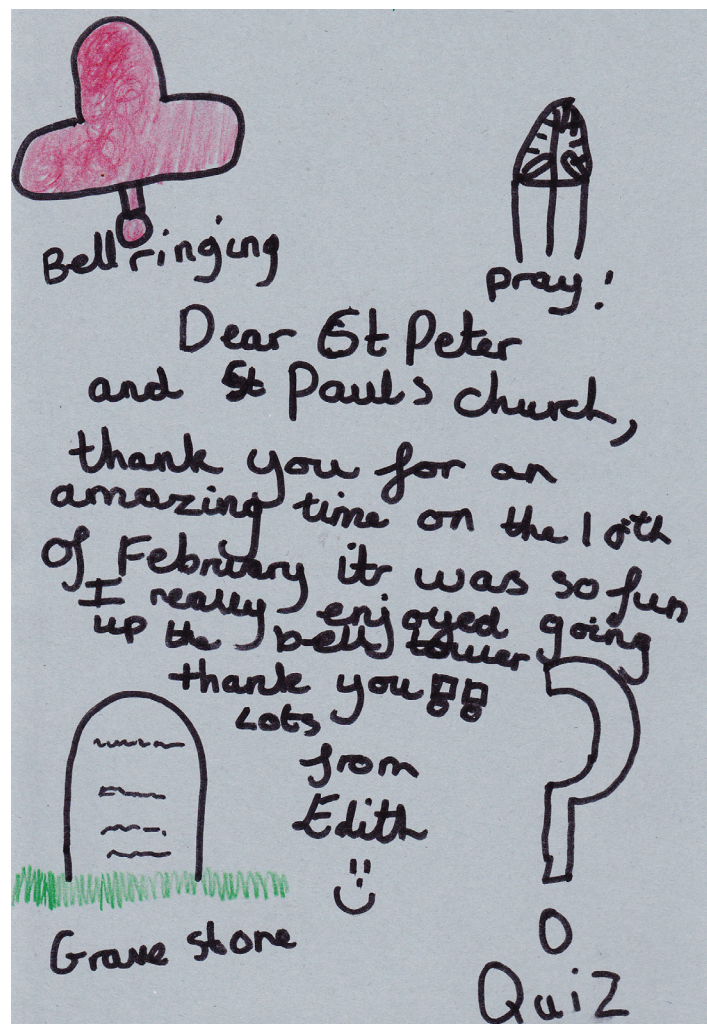 Bell ringing
pray!
Dear St Peter
and St Pauls church,
thank you for an
amazing time on the 10th
of February it was so fun
I really enjoyed going
up the bell tower
thank you!!
Lots
from
Edith
Grave stone
?
Quiz